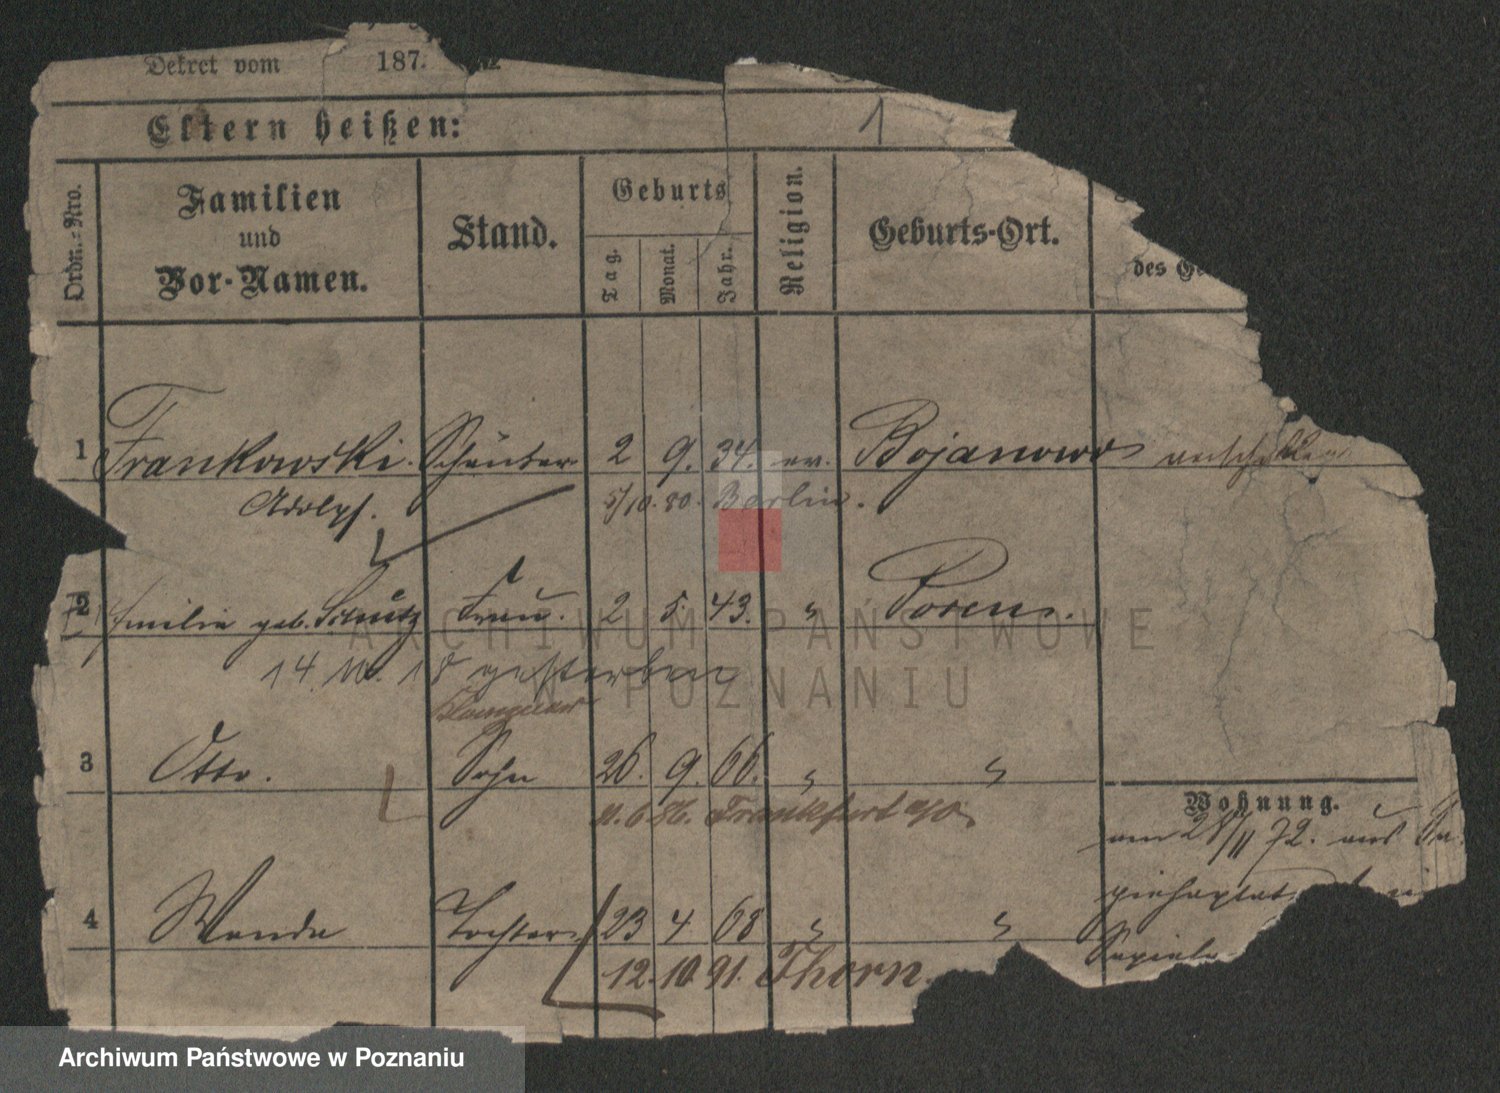 Dekret vom 187
Eltern heißen:
1
Ordn.-Nro.
Familien
und
Vor-Namen.
Stand.
Geburts
Tag.
Monat.
Jahr.
Religion.
Geburts-Ort.
des Ge
1 Frankowski. 2 9. 34. ev. Bojanowo
Adolph. 5/10. 80. Berlin.
2 Emilie geb. Frau. 2 5. 43. " Posen.
14. 10. 18 gestorben
3 Otto. Sohn 26. 9. 66. " "
11. 6. 86. Frankfurt a/O.
Wohnung.
4 Wanda Tochter 23 4 68 " "
12. 10. 91. Thorn.
ARCHIWUM PAŃSTWOWE
W POZNANIU
Archiwum Państwowe w Poznaniu